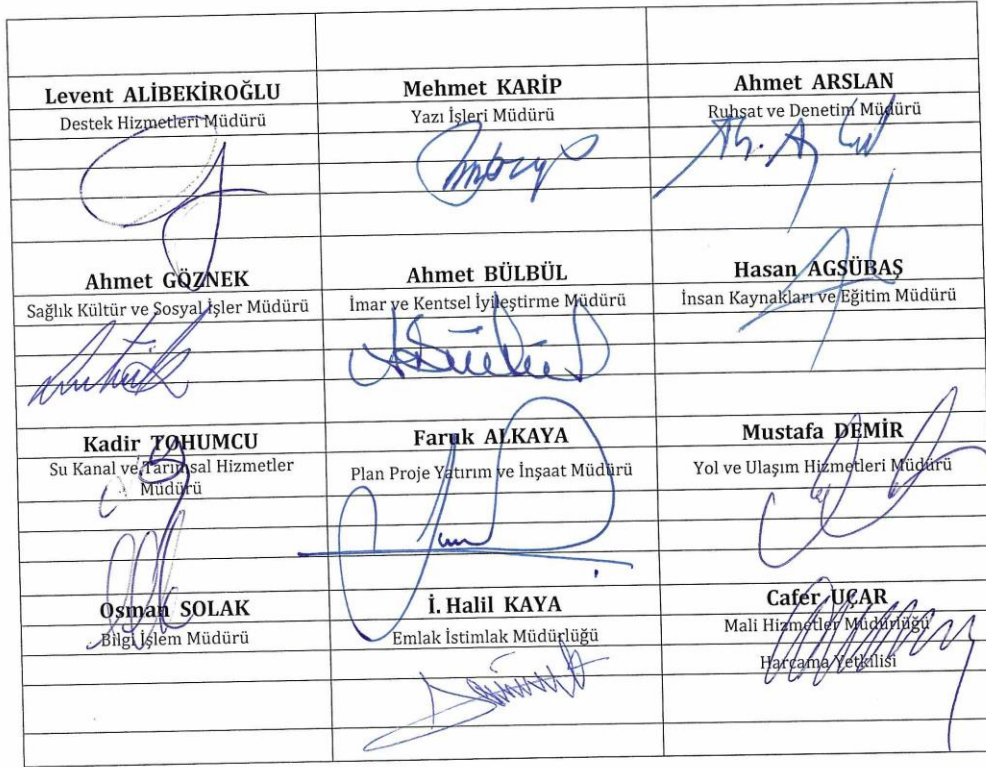 Levent ALİBEKİROĞLU
Destek Hizmetleri Müdürü
Mehmet KARİP
Yazı İşleri Müdürü
Ahmet ARSLAN
Ruhsat ve Denetim Müdürü
Ahmet GÖZNEK
Sağlık Kültür ve Sosyal İşler Müdürü
Ahmet BÜLBÜL
İmar ve Kentsel İyileştirme Müdürü
Hasan AGSÜBAŞ
İnsan Kaynakları ve Eğitim Müdürü
Kadir TOHUMCU
Su Kanal ve Tarımsal Hizmetler
Müdürü
Faruk ALKAYA
Plan Proje Yatırım ve İnşaat Müdürü
Mustafa DEMİR
Yol ve Ulaşım Hizmetleri Müdürü
Osman SOLAK
Bilgi İşlem Müdürü
İ. Halil KAYA
Emlak İstimlak Müdürlüğü
Cafer UÇAR
Mali Hizmetler Müdürlüğü
Harcama Yetkilisi